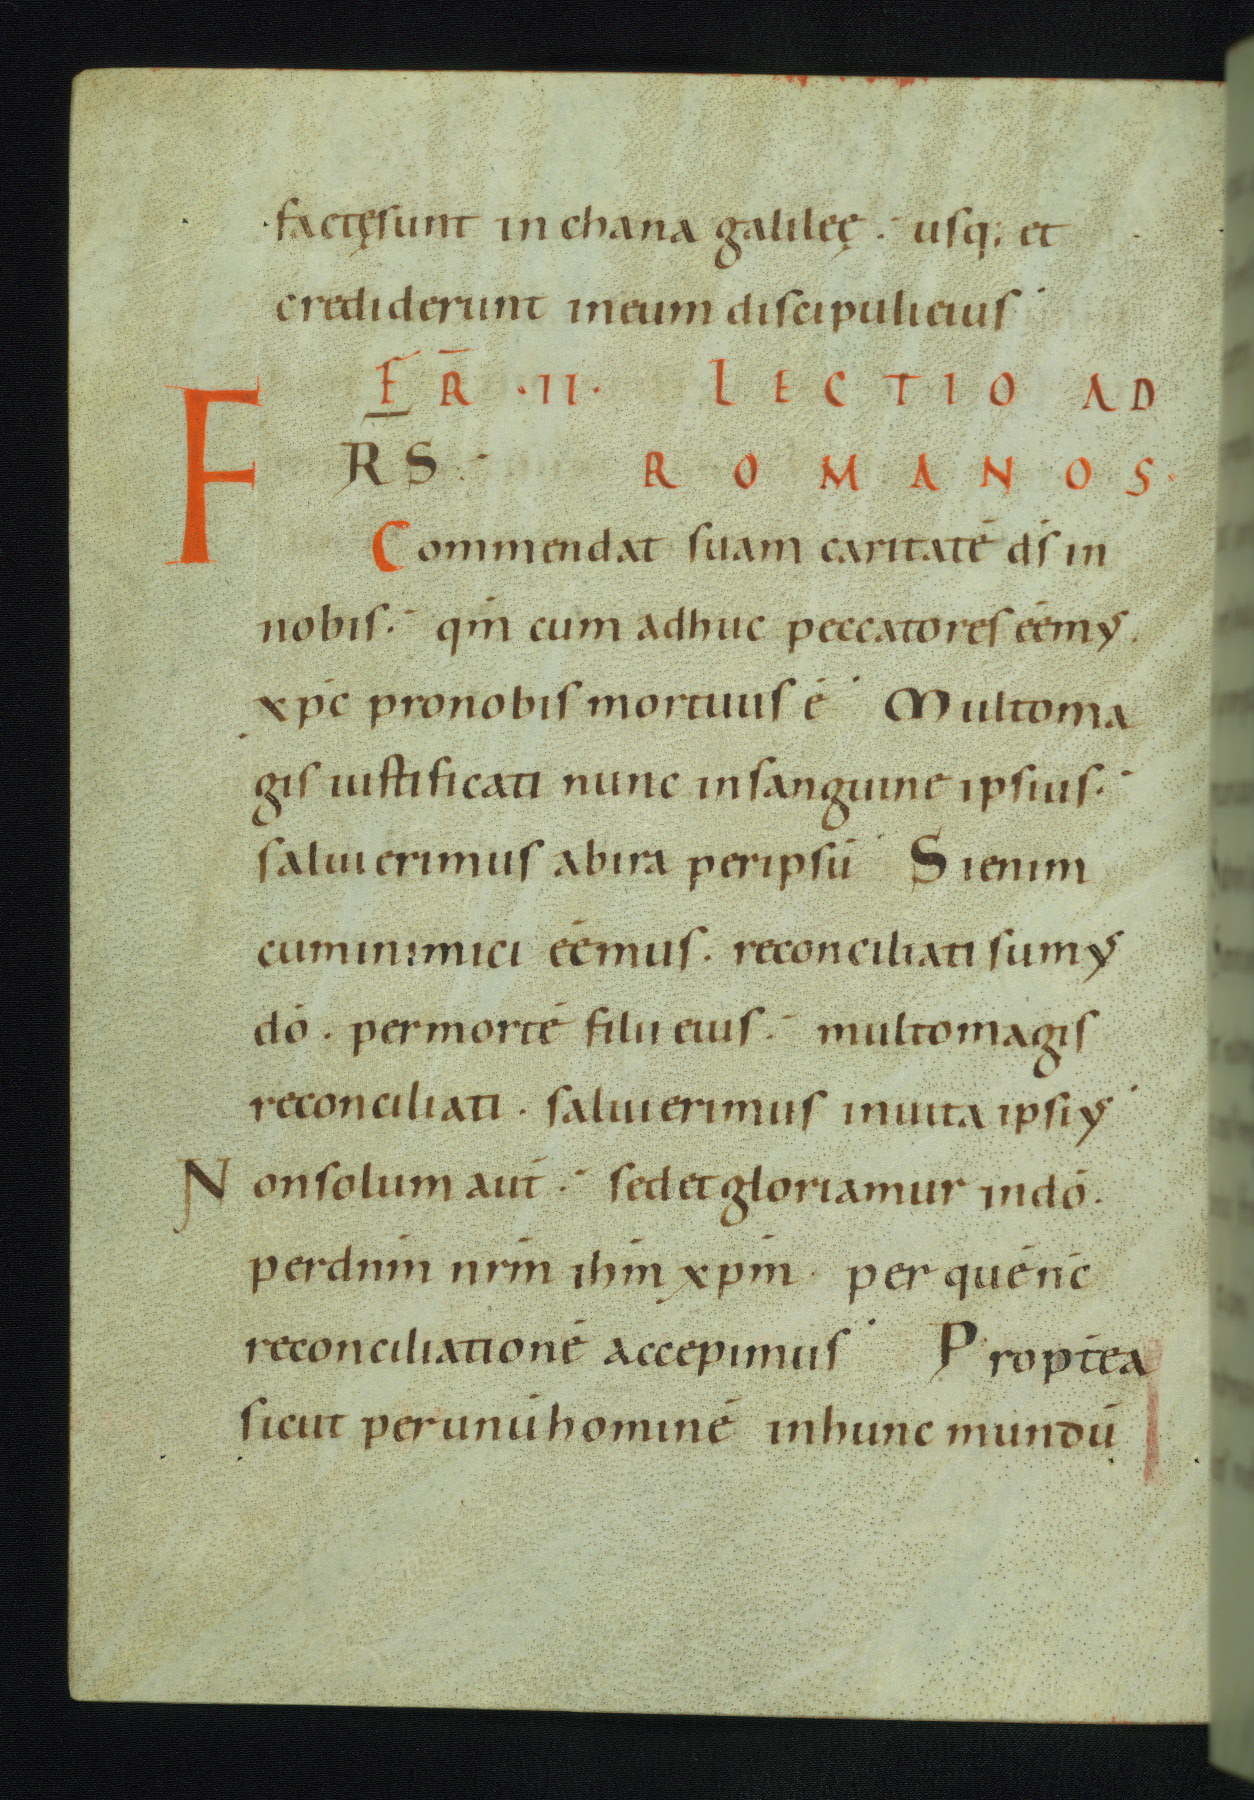 factęsunt in chana galileę. usq; et
crediderunt ineum discipulieius
FR̄ ·II· LECTIO AD
FRS. ROMANOS.
Commendat suam caritatē dś in
nobis. qm̄ cum adhuc peccatores eēmꝰ.
xpc̄ pronobis mortuus ē Multoma
gis iustificati nunc insanguine ipsius.
saluierimus abira peripsū Sienim
cuminimici eēmus. reconciliati sumꝰ
dō. permortē filii eius. multomagis
reconciliati. saluierimus inuita ipsiꝰ
Nonsolum aut̄. sedetgloriamur indō.
perdnm̄ nrm̄ ihm̄ xpm̄. per quē nc̄
reconciliationē accepimus Propt̄ea
sicut perunū hominē inhunc mundū